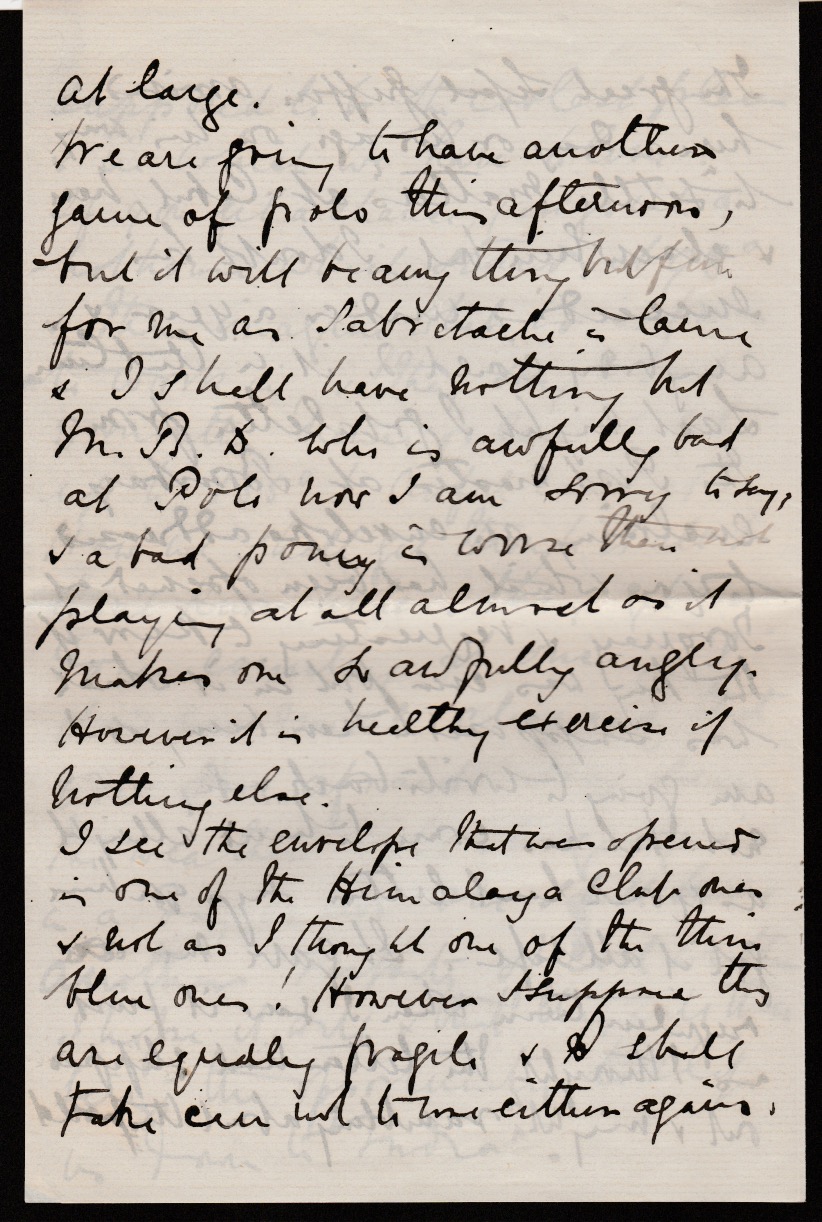 at large.
We are going to have another
game of polo this afternoon,
but it will be any thing but fun
for me as Sabretache is lame
& I shall have nothing but
Mr. B. D. who is awfully bad
at Polo now I am sorry to say,
& a bad poney is worse than not
playing at all almost as it
makes one so awfully angry.
However it is healthy exercise if
nothing else.
I see the envelope that was opened
is one of the Himalaya Club ones
& not as I thought one of the thin
blue ones! However I suppose they
are equally fragile & I shall
take care not to use either again.